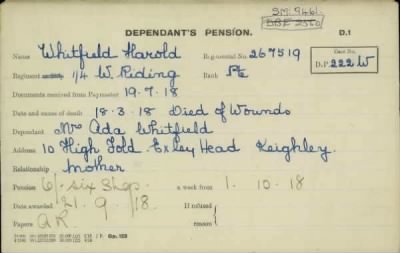 S.M. 9461.
DEPENDANT'S PENSION.
D.1
Name Whitfield Harold
Regimental No. 267519
Case No.
D.P. 222 W
Regiment 1/4 W. Riding
Rank Pte
Documents received from Paymaster 19.7.18
Date and cause of death 18.3.18 Died of Wounds
Dependant Mrs Ada Whitfield
Address 10 High Fold Exley Head Keighley.
Relationship mother
Pension 6/- six Shgs. a week from 1. 10. 18
Date awarded 21. 9. 18. If refused
Papers A.R. reason